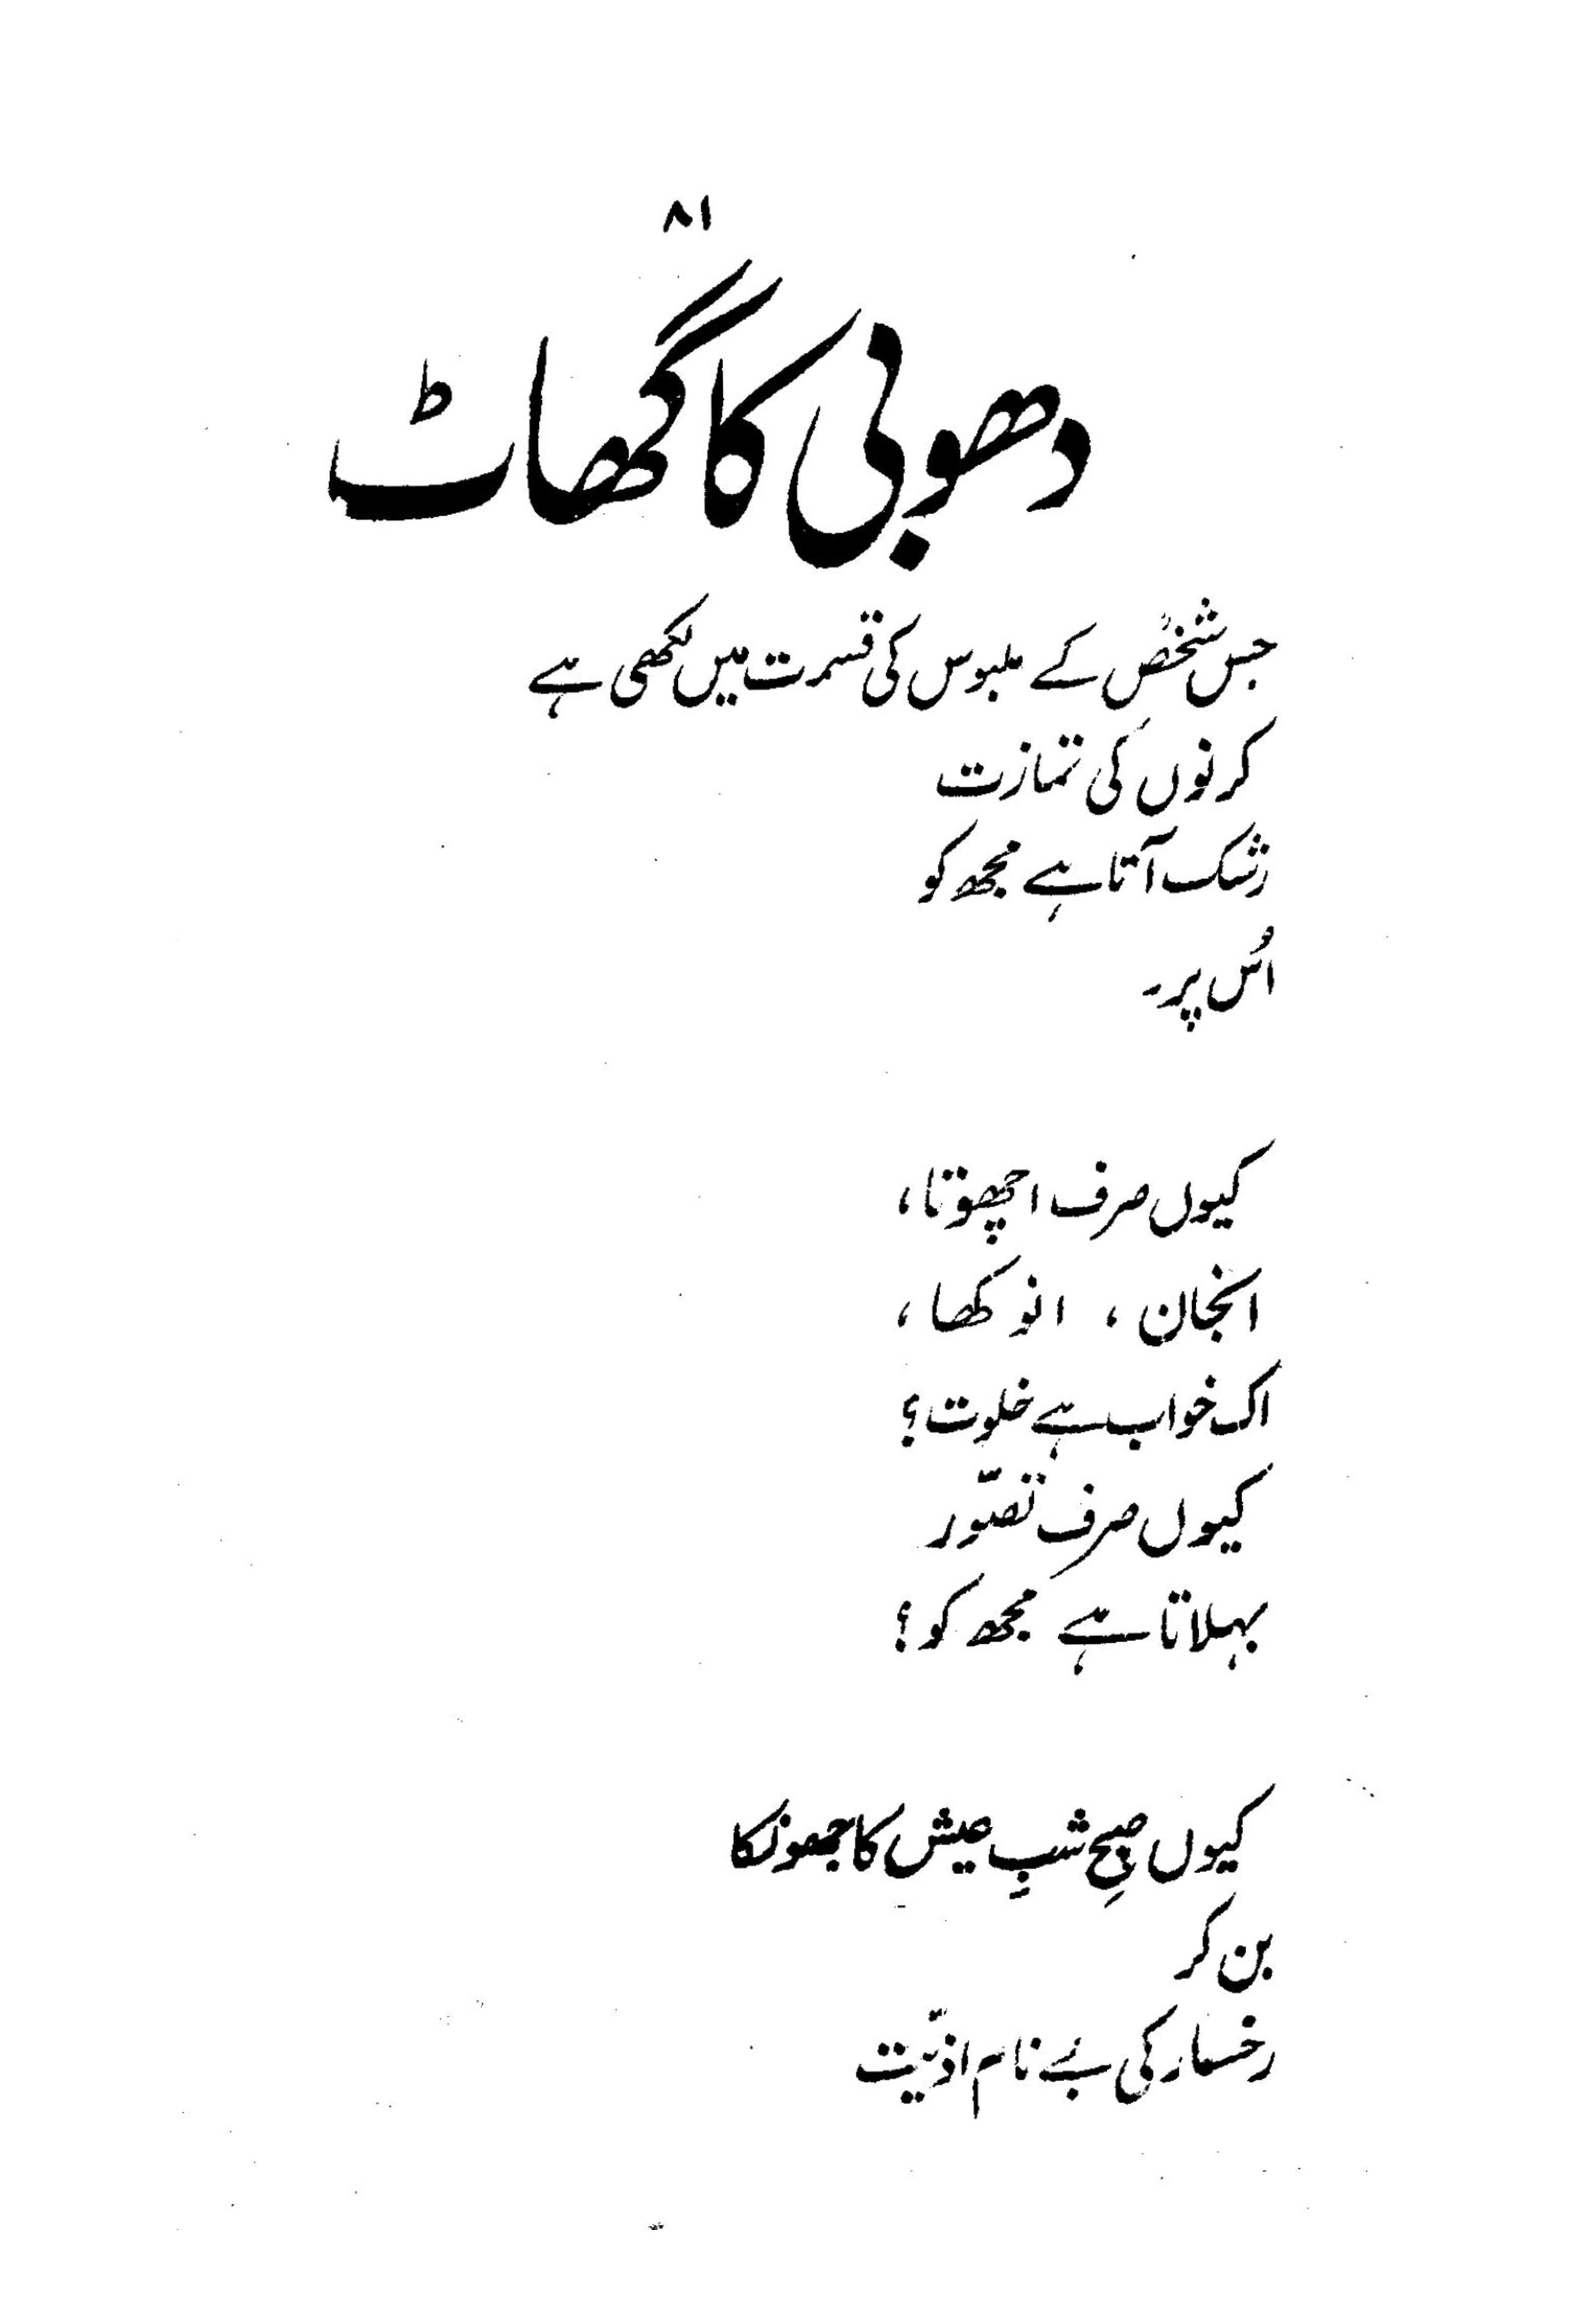 ۸۱
دھوبی کا گھاٹ
جس شخص کے ملبوس کی قسمت میں لکھی ہے
کرنوں کی تمازت
رشک آتا ہے مجھ کو
اُس پر۔
کیوں صرف اچھوتا،
انجان، انوکھا،
اک خواب ہے خلوت؟
کیوں صرف تصوّر
بہلاتا ہے مجھ کو؟
کیوں صبحِ شبِ عیش کا جھونکا
بن کر
رخسار کی بے نام اذیّت